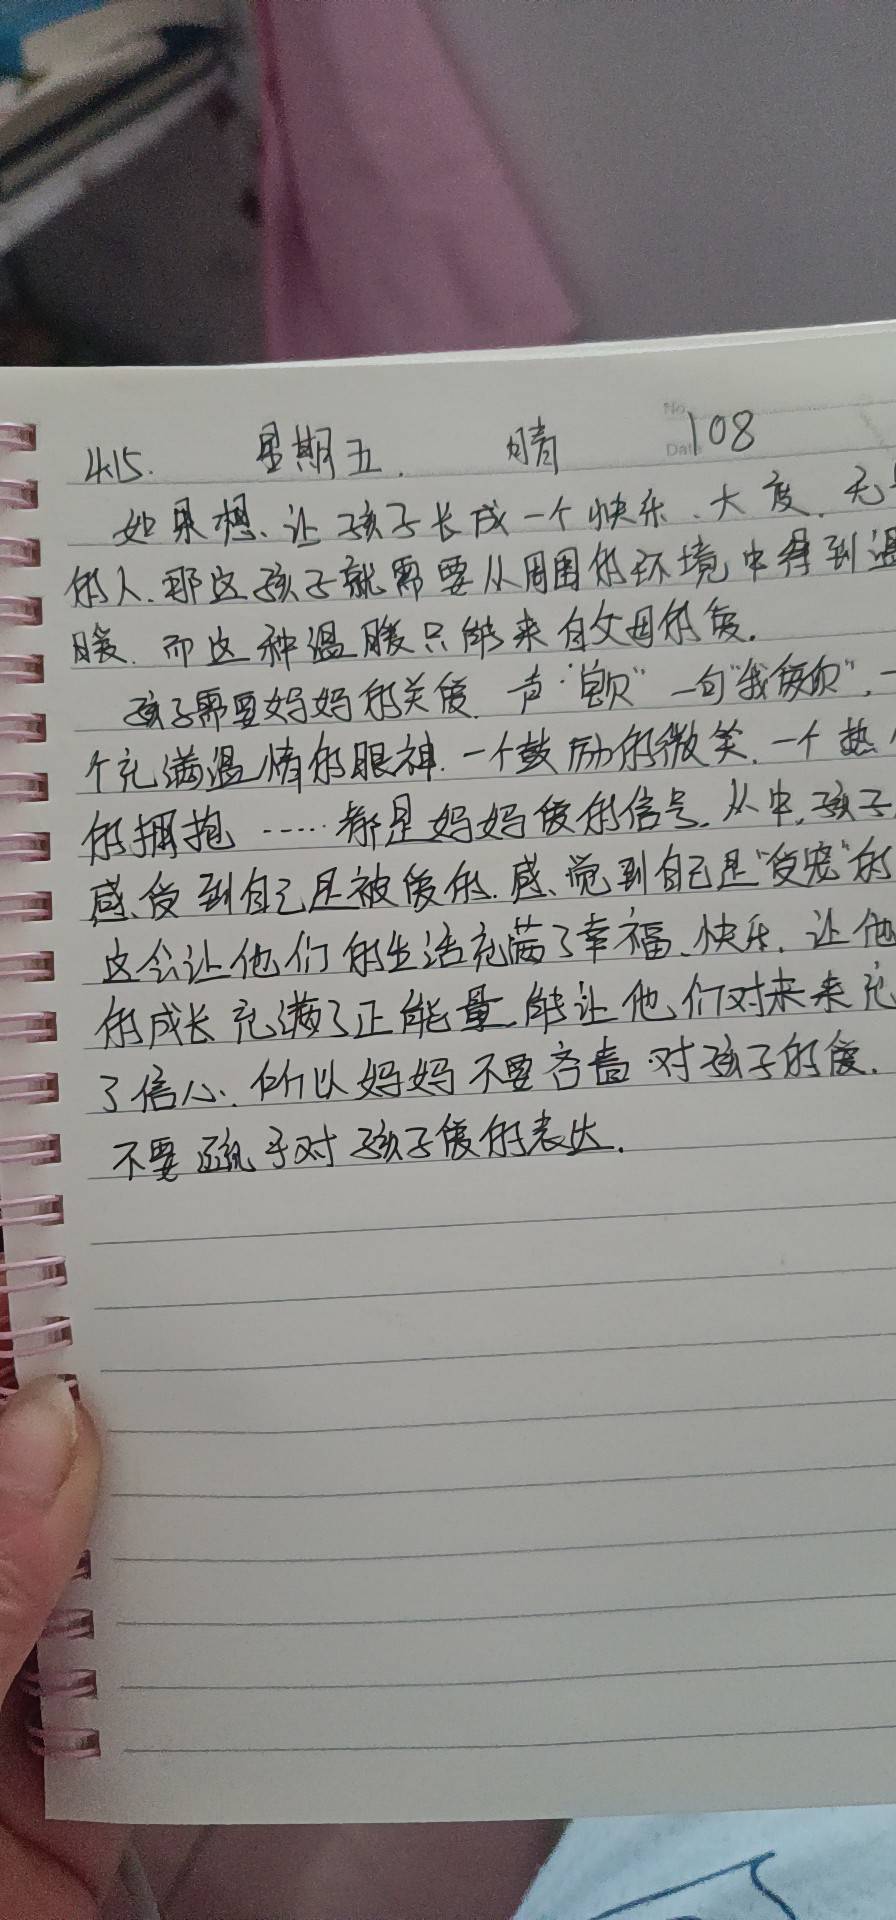 4.15. 星期五. 晴 108
No.
Date
如果想让孩子长成一个快乐、大度、无
的人.那这孩子就需要从周围的环境中得到温
暖.而这种温暖只能来自父母的爱.
孩子需要妈妈的关爱.一声"宝贝"一句"我爱你".一
个充满温情的眼神.一个鼓励的微笑.一个热
的拥抱……都是妈妈爱的信号.从中,孩子
感受到自己是被爱的.感觉到自己是"受宠"的
这会让他们的生活充满了幸福、快乐.让他
的成长充满了正能量.能让他们对未来充
了信心.所以妈妈不要吝啬对孩子的爱.
不要疏于对孩子爱的表达.